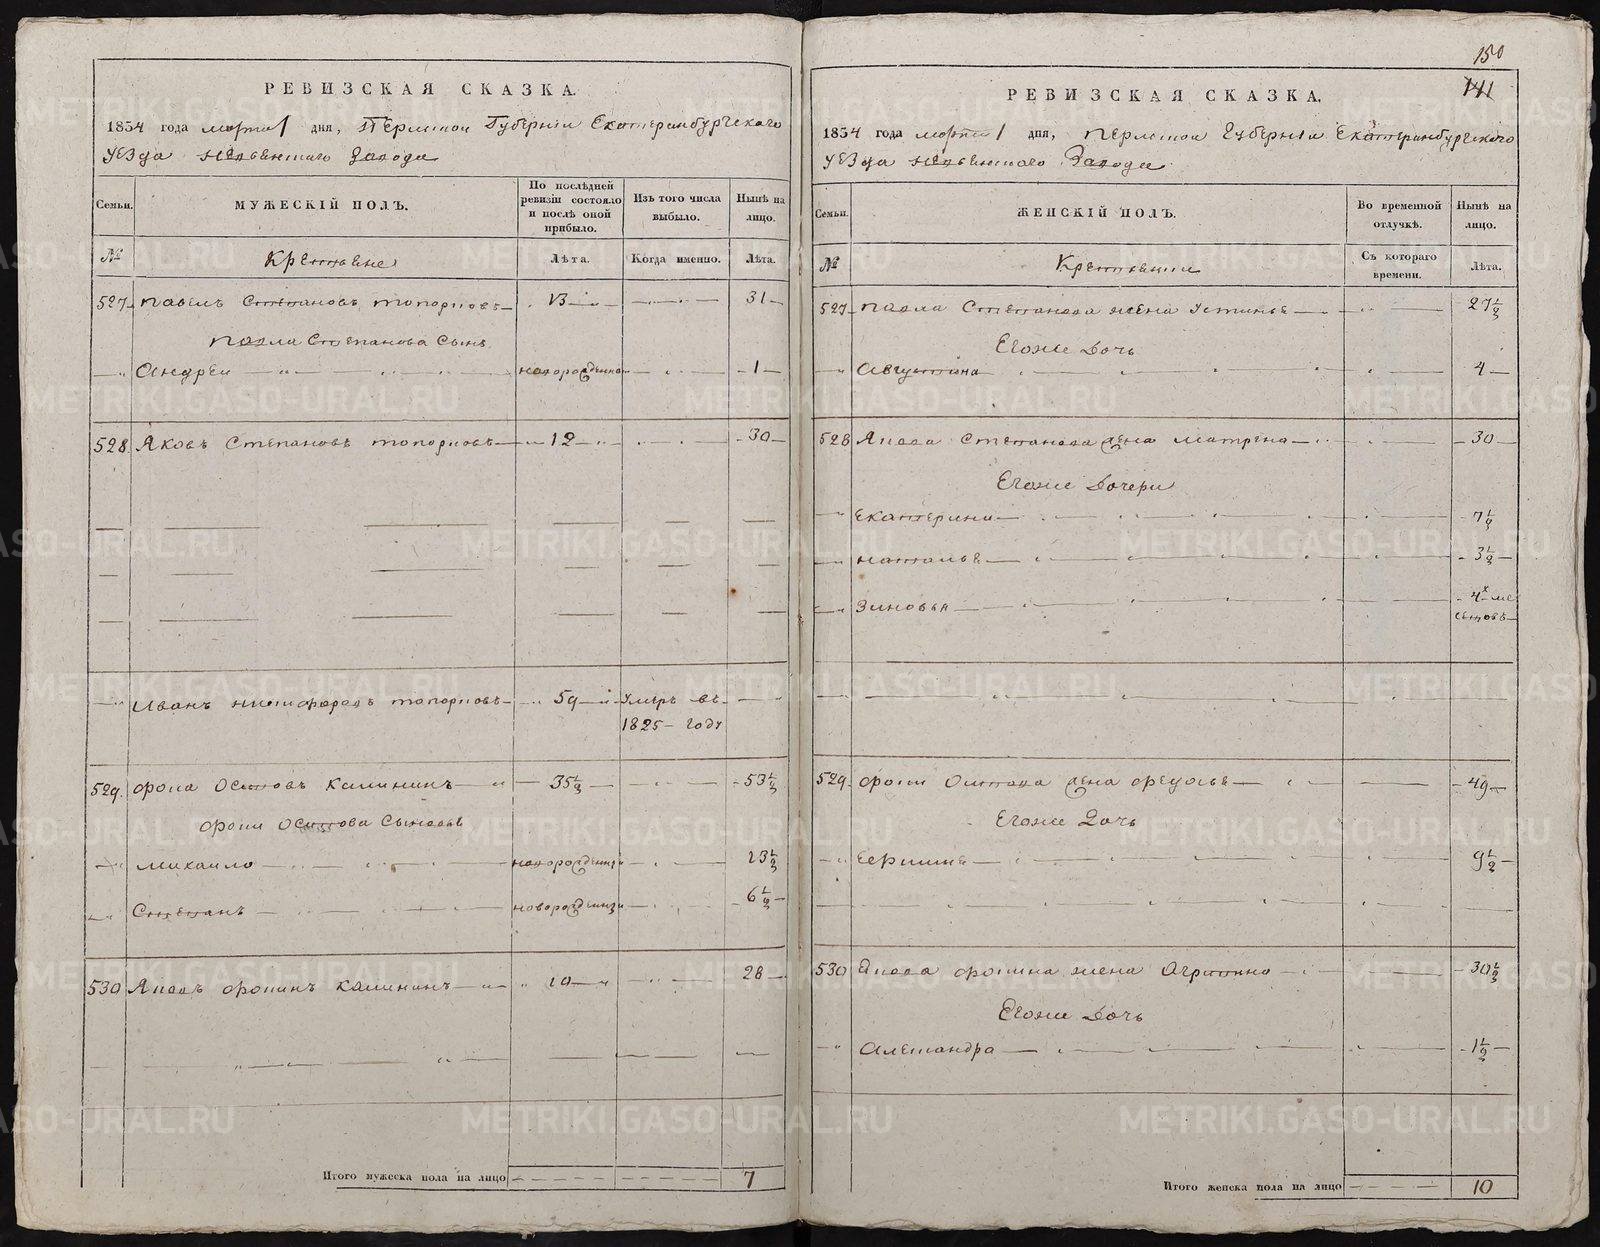 РЕВИЗСКАЯ СКАЗКА.
1834 года марта 1 дня, Пермской Губернiи Екатеринбургскаго
уезда Невьянскаго Завода
Семьи.
МУЖЕСКIЙ ПОЛЪ.
По послѣдней ревизiи состояло и послѣ оной прибыло.
Изъ того числа выбыло.
Нынѣ на лицо.
№
Крестьяне
Лѣта.
Когда именно.
Лѣта.
527 Павелъ Степановъ Топорковъ 13 31
Павла Степанова Сынъ
Андреи новорожденной 1
528. Яковъ Степановъ Топорковъ 12 30
Иванъ Никифоровъ Топорковъ 59 Умеръ въ
1825 году
529. Фока Осиповъ Калининъ 35½ 53½
Фоки Осипова Сыновья
Михаило новорожденный 13½
Степанъ новорожденный 6½
530 Яковъ Фокинъ Калининъ 10 28
Итого мужеска пола на лицо 7
150
141
РЕВИЗСКАЯ СКАЗКА.
1834 года марта 1 дня, Пермской Губернiи Екатеринбургскаго
уезда Невьянскаго Завода
Семьи.
ЖЕНСКIЙ ПОЛЪ.
Во временной отлучкѣ.
Нынѣ на лицо.
№
Съ котораго времени.
Лѣта.
527 Павла Степанова жена Устинья 27½
Егоже Дочь
Августина 4
528 Якова Степанова жена Матрена 30
Егоже Дочери
Екатерина 7½
Наталья 3½
Зиновья 4х ме
сецовъ
529. Фоки Осипова жена Федосья 49
Егоже Дочь
9½
530 Якова Фокина жена Агрипина 30½
Егоже Дочь
Александра 1½
Итого женска пола на лицо 10
METRIKI.GASO-URAL.RU